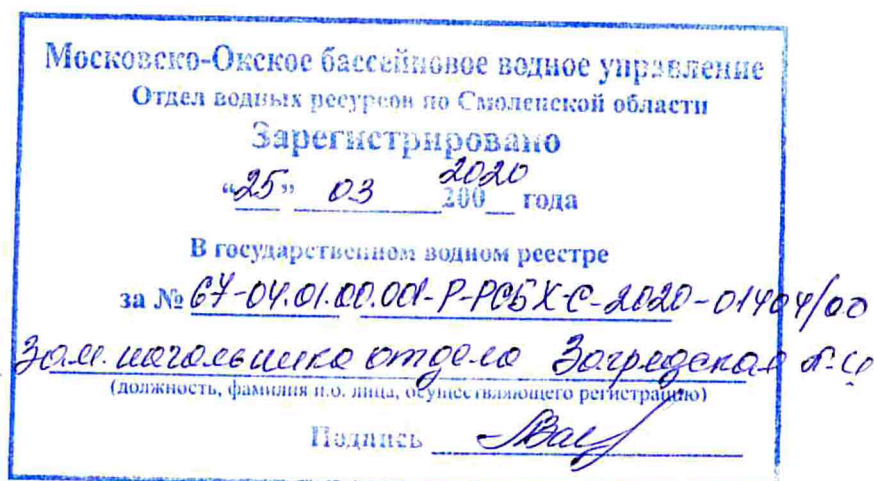 Московско-Окское бассейновое водное управление
Отдел водных ресурсов по Смоленской области
Зарегистрировано
2020
“25” 03 200__ года
В государственном водном реестре
за № 67-04.01.00.001-Р-РСБХ-С-2020-01404/00
Зам. начальника отдела
(должность, фамилия и.о. лица, осуществляющего регистрацию)
Подпись